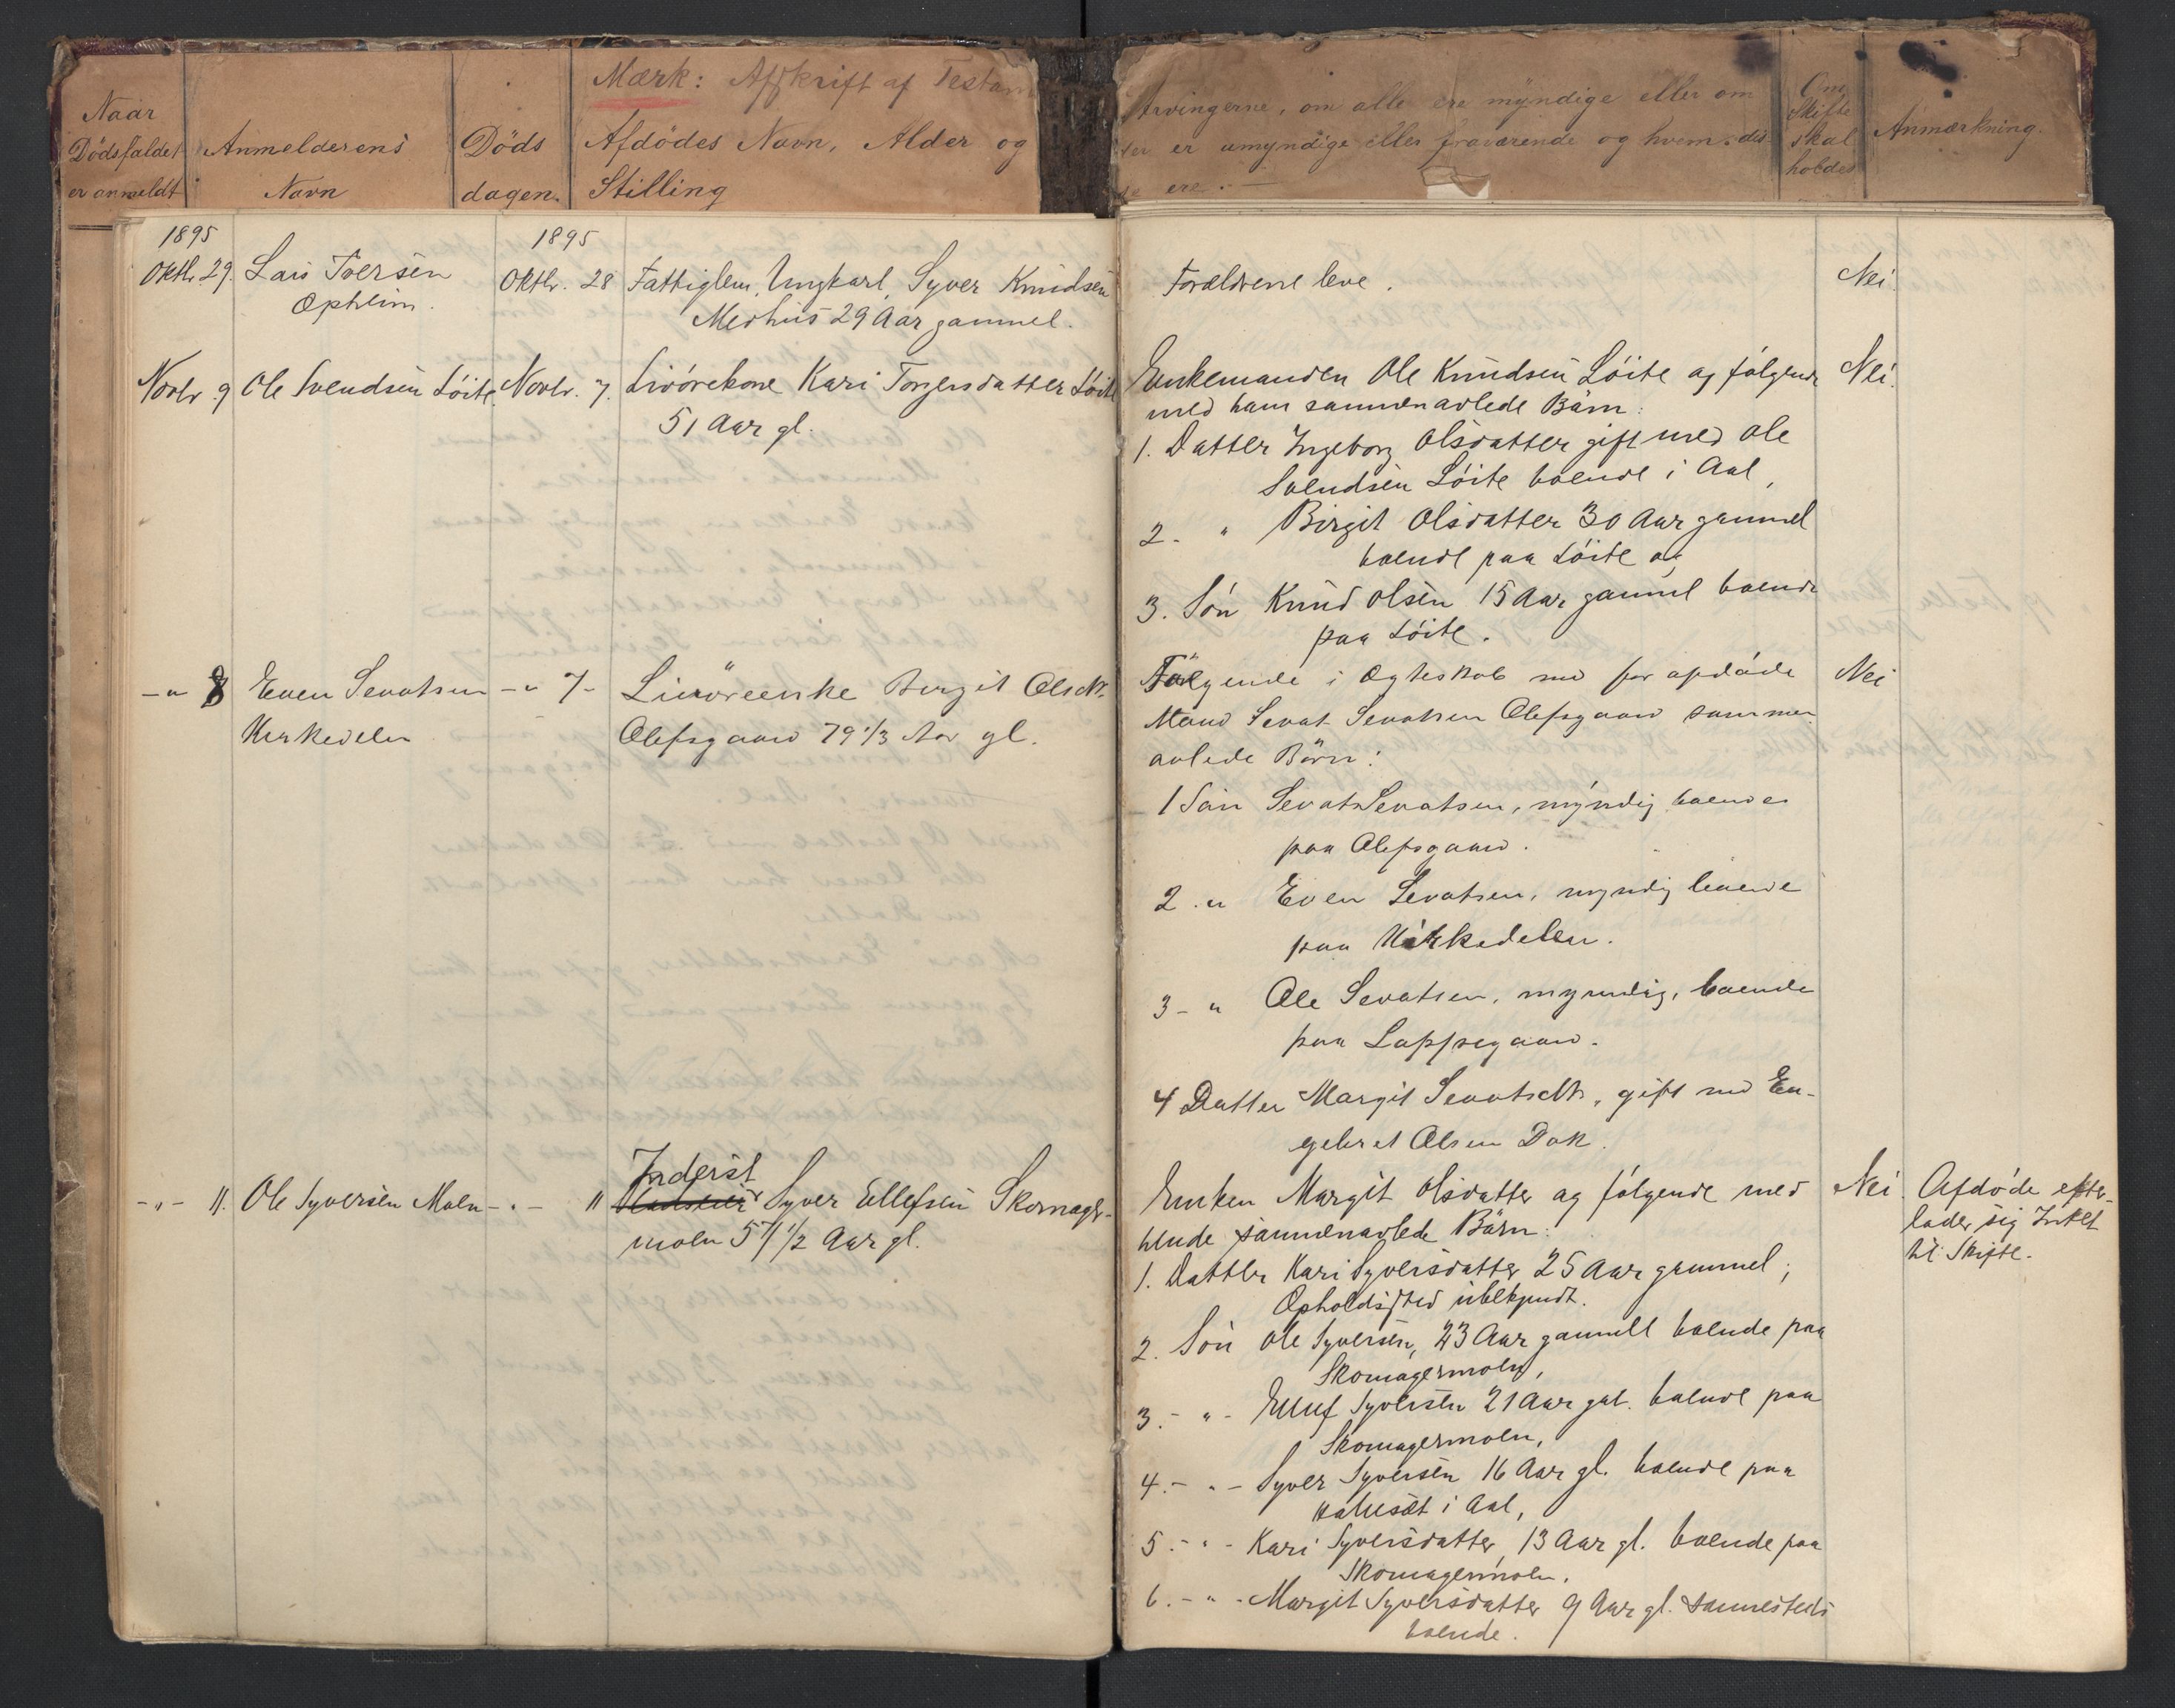 Mærk: Afskrift af Testam
Naar
Dödsfaldet
er anmeldt
Anmelderens
Navn
Döds
dagen.
Afdödes Navn, Alder og
Stilling
Arvingerne, om alle ere myndige eller om
er umyndige eller fraværende og hvem dis-
se ere.
Om
Skifte
skal
holdes
Anmærkning.
1895
Oktbr. 29.
Lars Toersen
Opheim.
1895
Oktbr. 28
Fattiglem, Ungkarl, Syver Knudsen
Medhus 29 Aar gammel.
Forældrene leve.
Nei.
Novbr 9
Ole Svendsen Löite.
Novbr. 7.
Livörekone Kari Torgersdatter Löite
51 Aar gl.
Enkemanden Ole Knudsen Löite og fölgende
med ham sammenavlede Börn:
1. Datter Ingeborg Olsdatter gift med Ole
Svendsen Löite boende i Aal,
2. " Birgit Olsdatter 30 Aar gammel
boende paa Löite og
3. Sön Knud Olsen 15 Aar gammel boende
paa Löite.
Nei.
-"- 8
Even Sevatsen
Kirkedelen
-"- 7-
Livöreenke Birgit Olsdtr.
Olefsgaard 79 1/3 Aar gl.
Fölgende i Ægteskab med før afdöde
Mand Sevat Sevatsen Olefsgaard sammen
avlede Börn:
1 Sön Sevat Sevatsen, myndig boende
paa Olefsgaard.
2. " Even Sevatsen, myndig boende
paa Kirkedelen.
3- " Ole Sevatsen, myndig, boende
paa Lappegaard.
4 Datter Margit Sevatsdtr, gift med En-
gebret Olsen Dok.
Nei
-"- 11.
Ole Syversen Moen
-"- 11
Inderst
Syver Ellefsen Skomager-
moen 57 1/2 Aar gl.
Enken Margit Olsdatter og fölgende med
hende sammenavlede Börn:
1. Datter Kari Syversdatter 25 Aar gammel;
Opholdssted ubekjendt.
2. Sön Ole Syversen, 23 Aar gammel boende paa
Skomagermoen,
3.- "- Elluf Syversen 21 Aar gal. boende paa
Skomagermoen,
4.- "- Syver Syversen 16 Aar gl. boende paa
i Aal,
5.- "- Kari Syversdatter, 13 Aar gl. boende paa
Skomagermoen.
6.- "- Margit Syversdatter 9 Aar gl. sammesteds
boende.
Nei
Afdöde efter-
lader sig Intet
til Skifte.